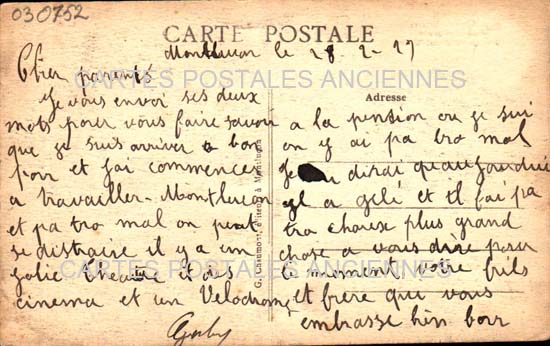 030752
CARTE POSTALE
Montlucon le 28-2-27
CARTES POSTALES ANCIENNES
Cher parents
Je vous envoi ses deux
mots pour vous faire savoir
que je suis arriver a bon
porr et j'ai commencer
a travailler. Montlucon
et pa tro mal on peut
se distraire il y a un
jolie theatre et des
cinema et un Velodrome
Gaby
G. Chaumont, éditeur à Montluçon
Adresse
a la pension ou je sui
on y ai pa tro mal
Je dirai quaujourdui
yl a gelé et il fai pa
tro chaux plus grand
chose a vous dire pour
le moment votre fils
et frère que vous
embrasse bien borr
CARTES POSTALES ANCIENNES